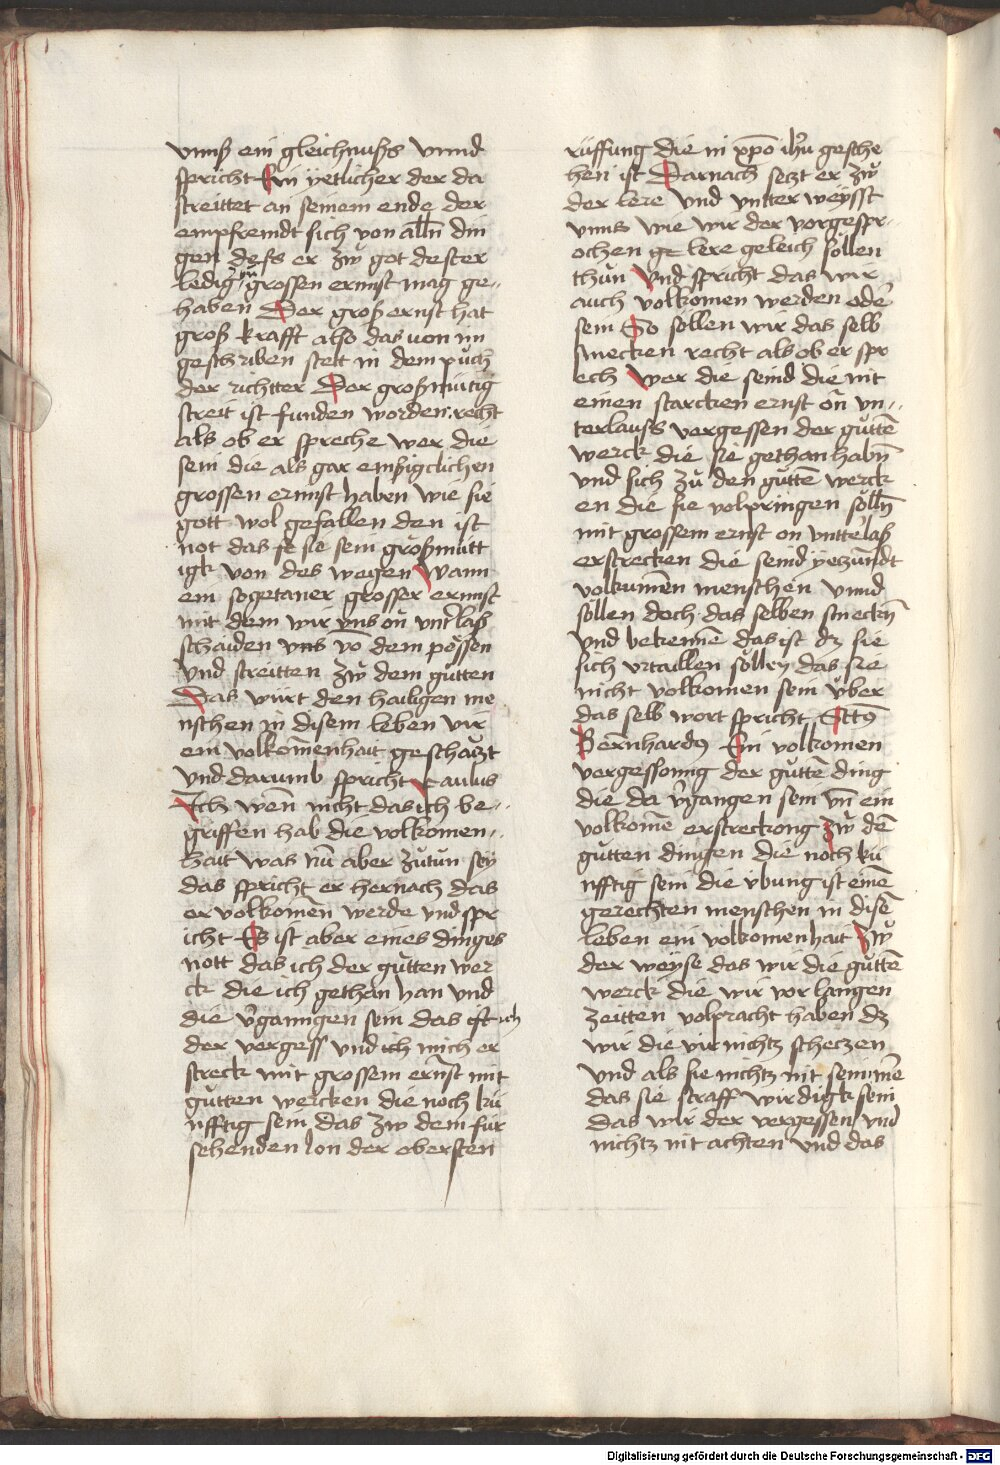 vnnß ein gleichnußs vnnd
spricht Ein yetlicher der da
streittet an seinem ende der
empfremdt sich von alln̄ din
gen dess er zw̆ got dester
ledigʼ vn̄ grossen ernnst mag ge„
haben Der groß ernst hat
groß krafft also das uon im
geschriben stett in dem pūch
der richtter Der großmūtig
streit ist funden worden recht
als ob er spreche wer die
sein die als gar emßigclichen
grossen ernnst haben wie sie
gott wol gefallen den ist
not das se sie sein großmūtt
igk von des wegen Wann
ein sogetaner grosser ernnst
mit dem wir vns on̄ vntʼlaß
schaiden vns vō dem pössen
vnd streitten zw̆ dem gūtten
Das wūrt den hailigen me
nschen in disem leben vir
ein volkom̄enhait geschaūzt
vnd darumb spricht Paulus
Ich wen̄ nicht das ich be„
griffen hab die volkomen„
hait was nū aber zūtun sey
das spricht er hernach das
er volkomen̄ werde vnd spr
icht Es ist aber eines dinges
nott das ich der gūtten wer
ck die ich gethan han vnd
die vʼganngen sein das ist ich
der vergess vnd ich mich er
streck mit grossem ern̄st mit
gūtten wercken die noch kū
nfftig sein das zw dem fūr
sehenden lon der obersten
rūffung die in xp̄o ihū gesche
hen ist Darnach setzt er zw̆
der lere vnd vntter weysst
vnns wie wir der vorgespr„
ochen ge lere geleich söllen
thūn Vnd spricht das wir
auch volkomen werden odeʼ
sein So söllen wir das selb
smecken recht als ob er spr
ech Wer die seind die mit
einen starcken ernst on̄ vn„
terlauss vergessen der gūttē
werck die sie gethan habn̄
vnd sich zū den gūttē werck
en die sie volpringen sölln̄
mit grossem ernst on vnttʼlaß
erstrecken die seind yetzūndt
volkumēn menschen vnnd
söllen doch das selben smeckn̄
vnd bekennē das ist dz sie
sich vrtaillen sölley das sie
nicht volkomen sein v̆ber
das selb wort spricht Sctꝰ
Bernhardꝰ Ein volkomen
vergessoung der gūttē ding
die da vʼgangen sein vn̄ ein
volkomē erstreckong zw̆ dē
gūtten dingen die noch kū
nfftig sein die v̆bung ist einē
gerechten menschen in disē
leben ein volkomenhait Zw̆
der weyse das wir die gūttē
werck die wir vor langen
zeitten volpracht haben dz
wir die vir nichtz schetzen
vnd als sie nichtz nit sein mē
das sie straff wirdigk sein
das wir der vergessen vnd
nichtz nit achten vnd das
Digitalisierung gefördert durch die Deutsche Forschungsgemeinschaft - DFG